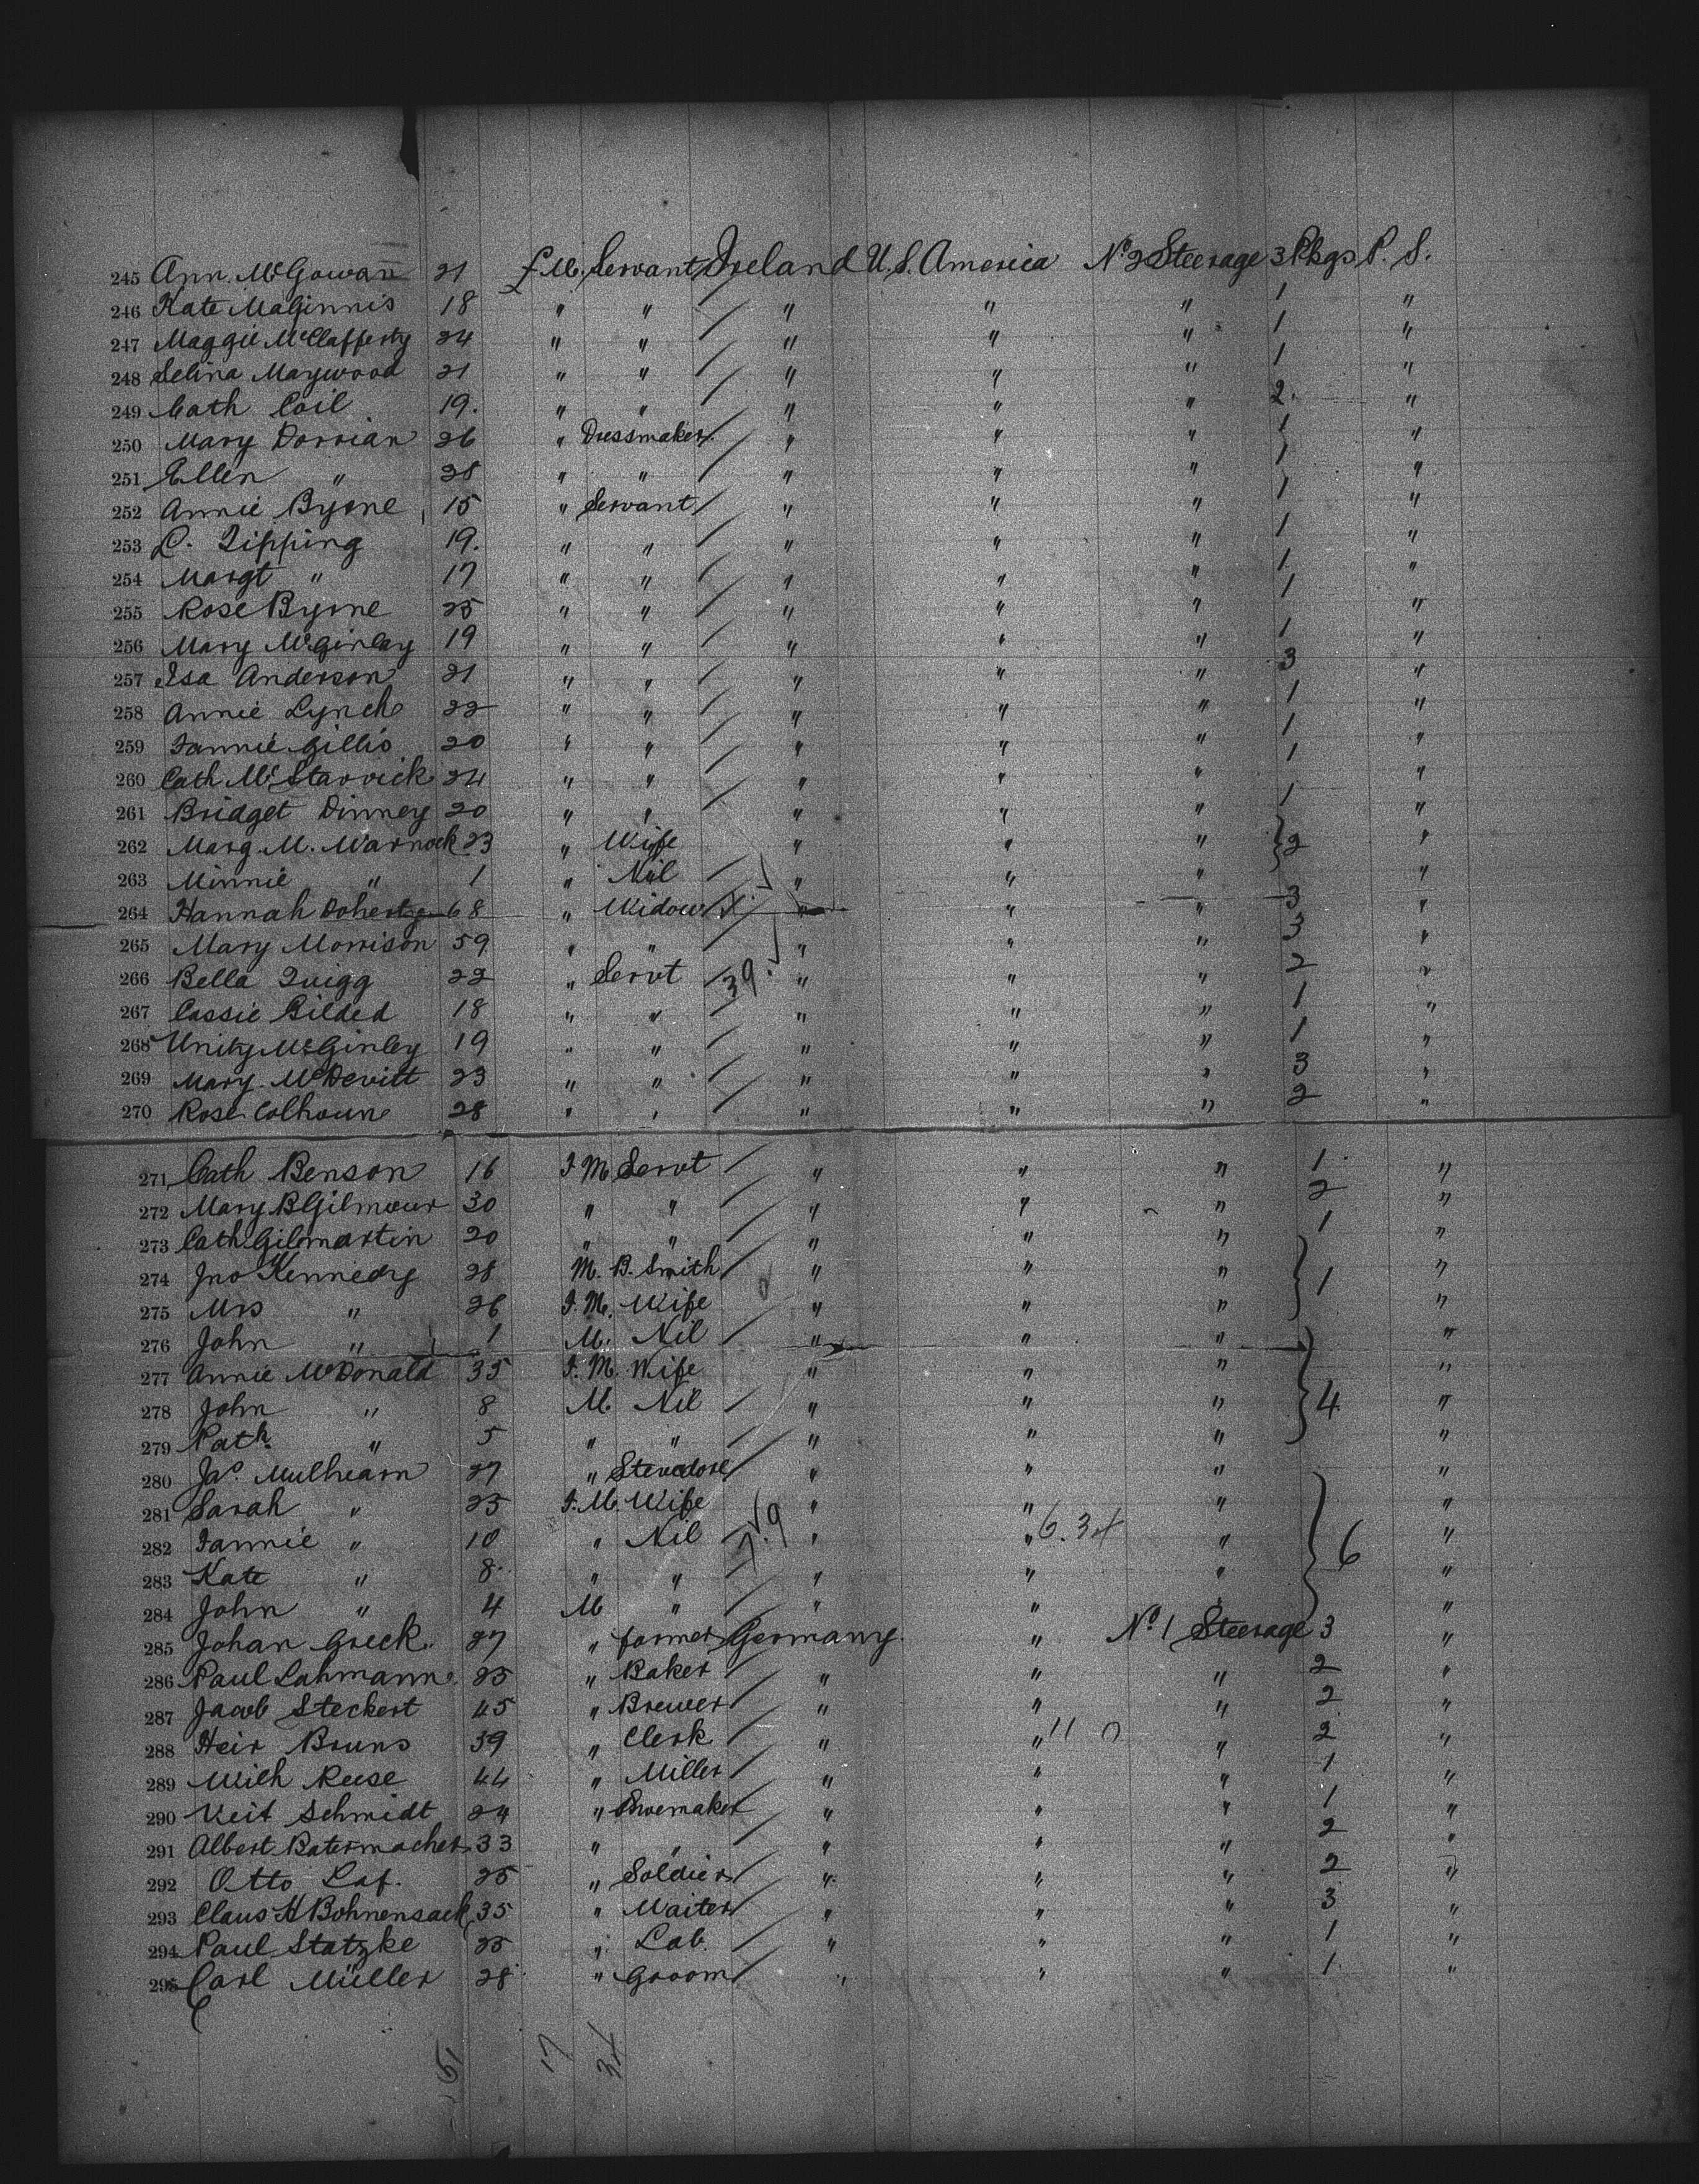 245 Ann. McGowan 21 F.M. Servant Ireland U.S. America No 2 Steerage 3 Pkgs P. S.
246 Kate MaGinnis 18 " " " " " 1 "
247 Maggie McClafferty 24 " " " " " 1 "
248 Selina Maywood 21 " " " " " 1 "
249 Cath Coil 19. " " " " " 2. "
250 Mary Dorrian 26 " Dressmaker " " " 1 "
251 Ellen " 28 " " " " " 1 "
252 Annie Byrne 15 " Servant " " " 1 "
253 C. Tipping 19. " " " " " 1 "
254 Margt " 17 " " " " " 1 "
255 Rose Byrne 25 " " " " " 1 "
256 Mary McGinley 19 " " " " " 1 "
257 Isa Anderson 21 " " " " " 3 "
258 Annie Lynch 22 " " " " " 1 "
259 Fannie Gillis 20 " " " " " 1 "
260 Cath McStarvick 24 " " " " " 1 "
261 Bridget Dinney 20 " " " " " 1 "
262 Marg. M. Warnock 23 " Wife " " " 2 "
263 Minnie " 1 " Nil " " " "
264 Hannah Doherty 68 " Widow " " " 3 "
265 Mary Morrison 59 " " " " " 3 "
266 Bella Quigg 22 " Servt 39 " " " 2 "
267 Cassie Gilded 18 " " " " " 1 "
268 Unity McGinley 19 " " " " " 1 "
269 Mary McDevitt 23 " " " " " 3 "
270 Rose Colhoun 28 " " " " " 2 "
271 Cath Benson 16 F M Servt " " " 1 "
272 Mary B Gilmour 30 " " " " " 2 "
273 Cath Gilmartin 20 " " " " " 1 "
274 Jno Kennedy 28 M. B. Smith " " " 1 "
275 Mrs " 26 F. M. Wife " " " "
276 John " 1 M. Nil " " " "
277 Annie McDonald 35 F. M. Wife " " " "
278 John " 8 M. Nil " " " 4 "
279 Patk " 5 " " " " " "
280 Jas. Mulhearn 27 " Stevedore " " " "
281 Sarah " 25 F. M. Wife " " " "
282 Fannie " 10 " Nil " " 6.34 " 6 "
283 Kate " 8. " " " " " "
284 John " 4 M " " " " "
285 Johan Greck. 27 " farmer Germany. " No 1 Steerage 3 "
286 Paul Lahmann. 25 " Baker " " " 2 "
287 Jacob Steckert 45 " Brewer " " " 2 "
288 Heir Bruns 39 " Clerk " " 11 0 " 2 "
289 Wilh Reese 44 " Miller " " " 1 "
290 Veit Schmidt 24 " Shoemaker " " " 1 "
291 Albert Batermacher 33 " " " " " 2 "
292 Otto Laf. 25 " Soldier " " " 2 "
293 Claus H Bohnensack 35 " Waiter " " " 3 "
294 Paul Statzke 25 " Lab. " " " 1 "
295 Carl Müller 28 " Groom " " " 1 "
51 17 34